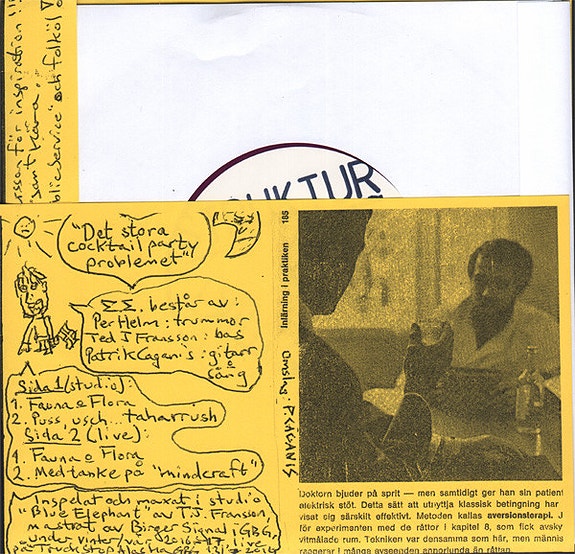 rsson för inspiration !!
samt Klara.
blicservice" och folköl
UKTUR
"Det stora
cocktailparty
problemet"
ΣΣ. består av:
Per Helm: trummor
Ted J Fransson: bas
Patrik Caganis: gitarr
o sång
Sida 1 (studio):
1. Fauna o Flora
2. Puss, usch... taharrush
Sida 2 (live):
1. Fauna o Flora
2. Med tanke på "mindcraft"
Inspelat och maxat i studio
"Blue Elephant" av T.J. Fransson
mastrat av Birger Signal i GBG,
under vinter/vår 2016-17, live
på Truckstop Alaska GBG
Inlärning i praktiken 185
Omslag: P.CAGANIS
Doktorn bjuder på sprit — men samtidigt ger han sin patient
elektrisk stöt. Detta sätt att utnyttja klassisk betingning har
visat sig särskilt effektivt. Metoden kallas aversionsterapi. J
för experimenten med de råttor i kapitel 8, som fick avsky
vitmålade rum. Tekniken var densamma som här, men männis
reagerar i många avseenden annorlunda än råttan